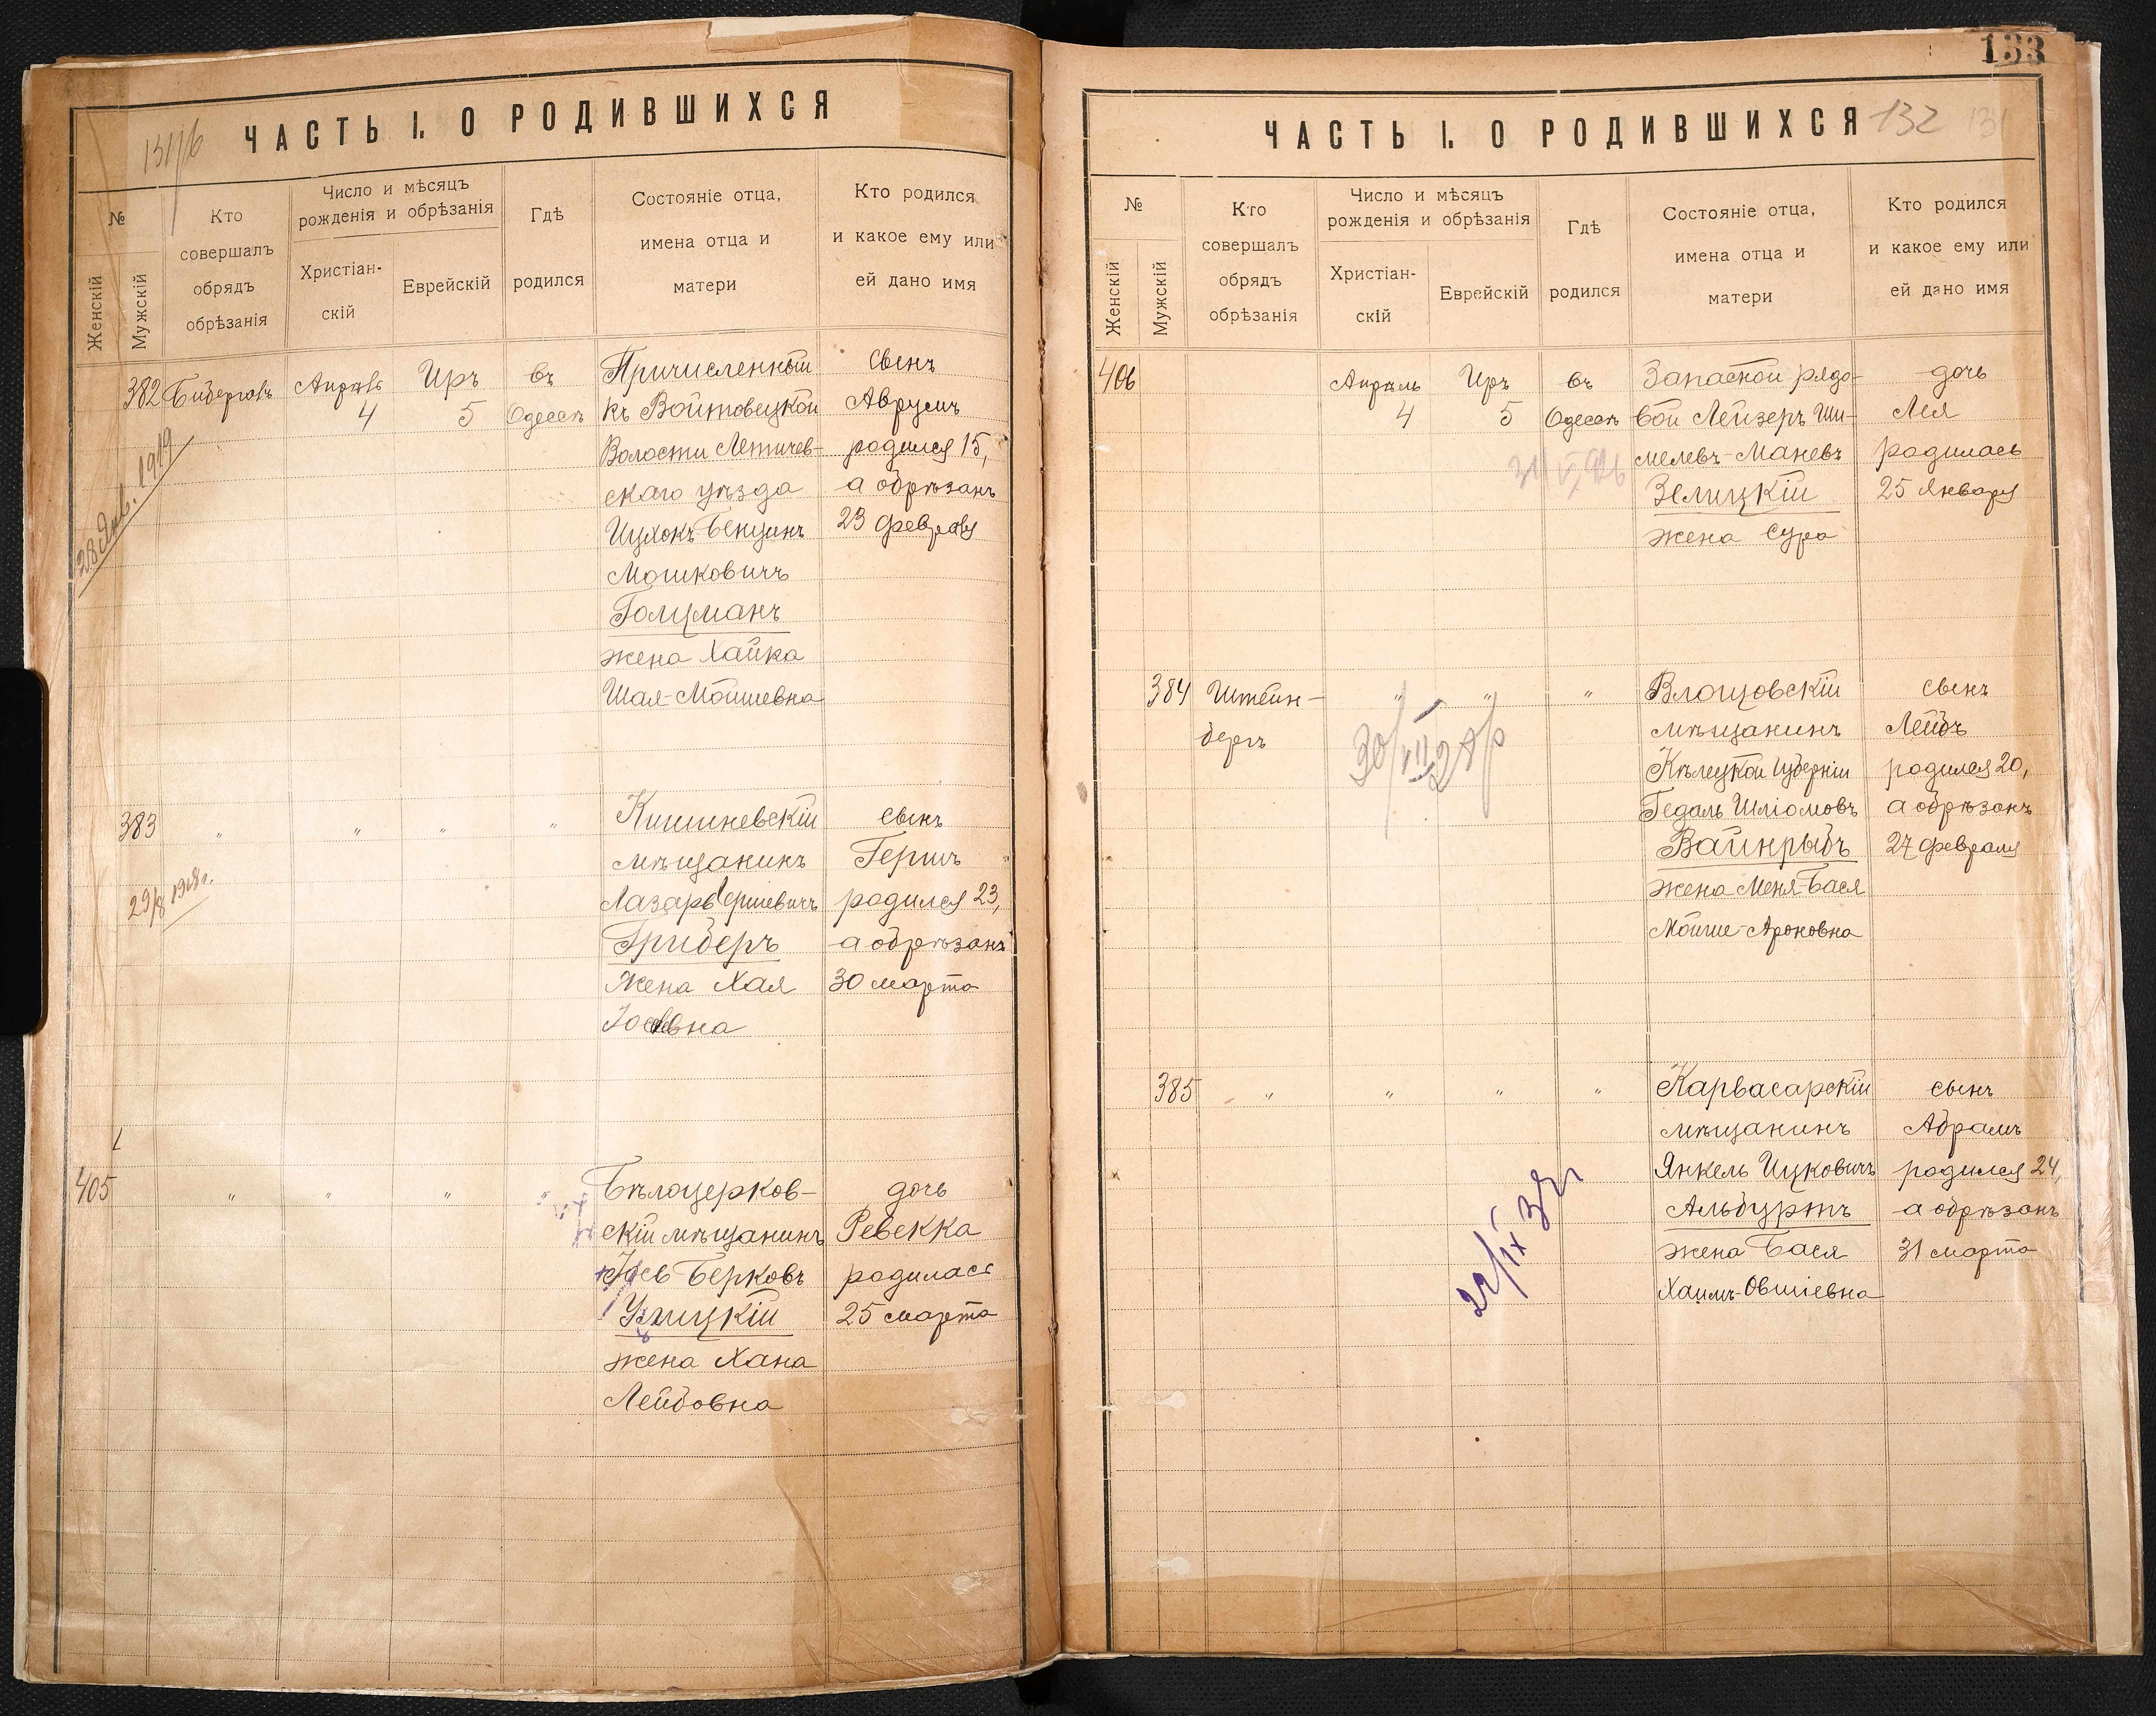 ЧАСТЬ I. О РОДИВШИХСЯ
№
Женскій
Мужскій
Кто
совершалъ
обрядъ
обрѣзанія
Число и мѣсяцъ
рожденія и обрѣзанія
Христіан-
скій
Еврейскій
Гдѣ
родился
Состояніе отца,
имена отца и
матери
Кто родился
и какое ему или
ей дано имя
382
Апрѣль
4
Иръ
5
въ
Одессѣ
Причисленный
къ Войтовецкой
Волости Летичев-
скаго уѣзда
Ицхокъ-Бенціинъ
Мошковичъ
Голцманъ
жена Хайка
Шая-Мойшевна
сынъ
Аврумъ
родился 15,
а обрѣзанъ
23 февраля
28 Янв. 1919
383
"
"
"
"
Кишиневскій
мѣщанинъ
Лазарь Гершевичъ
Гриберъ
жена Хая
сынъ
Гершъ
родился 23,
а обрѣзанъ
30 марта
29/8 1918г.
405
"
"
"
"
Бѣлоцерков-
скій мѣщанинъ
Берковъ
Улицкій
жена Хана
Лейбовна
дочь
Ревекка
родилась
25 марта
133
ЧАСТЬ I. О РОДИВШИХСЯ
132
131
№
Женскій
Мужскій
Кто
совершалъ
обрядъ
обрѣзанія
Число и мѣсяцъ
рожденія и обрѣзанія
Христіан-
скій
Еврейскій
Гдѣ
родился
Состояніе отца,
имена отца и
матери
Кто родился
и какое ему или
ей дано имя
406
Апрѣль
4
Иръ
5
въ
Одессѣ
Запасной рядо-
вой Лейзеръ Ши-
мелевъ-Маневъ
Зелицкій
жена Сура
дочь
Лея
родилась
25 Января
384
Штейн-
бергъ
"
"
"
Влощовскій
мѣщанинъ
Кѣлецкой губерніи
Гедаль Шліомовъ
Вайнрыбъ
жена Меня-Бася
Мойше-Ароновна
сынъ
Лейбъ
родился 20,
а обрѣзанъ
27 февраля
385
"
"
"
"
Карвасарскій
мѣщанинъ
Янкель Ицковичъ
Альбуртъ
жена Бася
Хаимъ-Овшіевна
сынъ
Абрамъ
родился 24,
а обрѣзанъ
31 марта